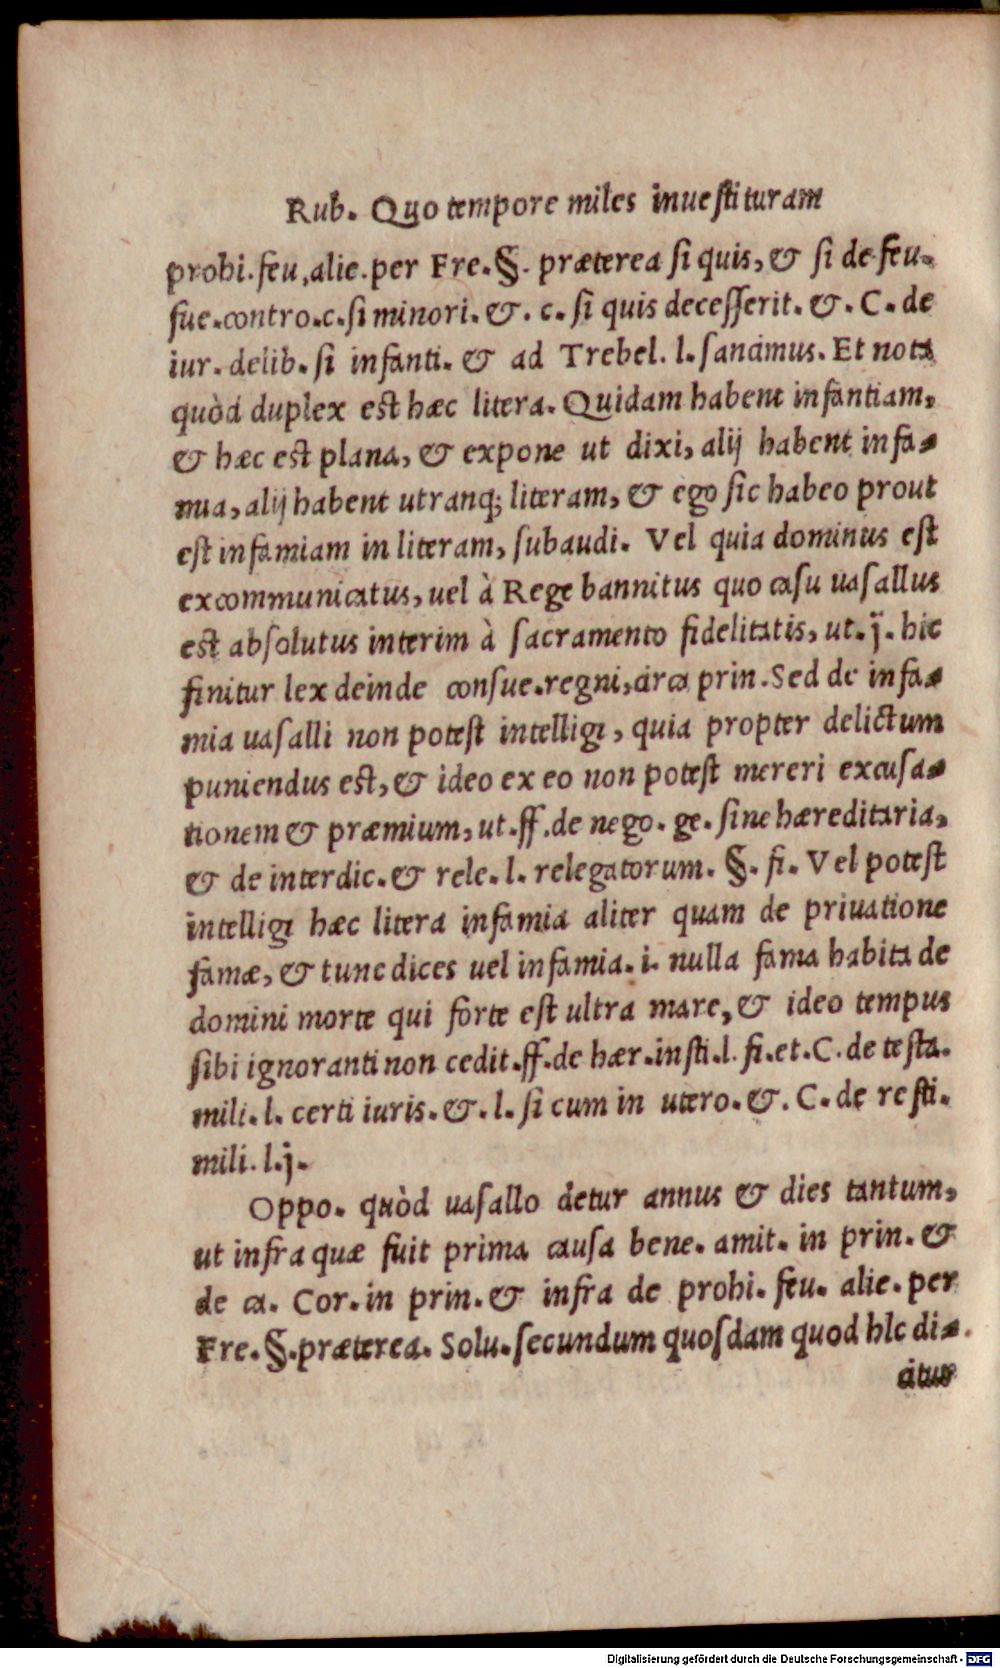 Rub. Quo tempore miles inuestituram
probi.feu,alie.per Fre.§. præterea si quis, & si de feu-
fue.contro.c.si minori. &. c. si quis decesserit. &. C. de
iur. delib. si infanti. & ad Trebel. l. sancimus. Et nota
quòd duplex est hæc litera. Quidam habent infantiam,
& hæc est plana, & expone ut dixi, alij habent infa-
mia, alij habent utranq; literam, & ego sic habeo prout
est infamiam in literam, subaudi. Vel quia dominus est
excommunicatus, uel à Rege bannitus quo casu uasallus
est absolutus interim à sacramento fidelitatis, ut. j. hic
finitur lex deinde consue.regni,circa prin. Sed de infa-
mia uasalli non potest intelligi, quia propter delictum
puniendus est, & ideo ex eo non potest mereri excusa-
tionem & præmium, ut.ff.de nego. ge. sine hæreditaria,
& de interdic. & rele. l. relegatorum. §. fi. Vel potest
intelligi hæc litera infamia aliter quam de priuatione
famæ, & tunc dices uel infamia. i. nulla fama habita de
domini morte qui forte est ultra mare, & ideo tempus
sibi ignoranti non cedit.ff.de hær.insti.l. fi.et.C. de testa.
mili. l. certi iuris. &. l. si cum in utero. &. C. de resti.
mili. l.j.
Oppo. quòd uasallo detur annus & dies tantum,
ut infra quæ fuit prima causa bene. amit. in prin. &
de ca. Cor. in prin. & infra de probi. feu. alie. per
Fre. §. præterea. Solu. secundum quosdam quod hîc di-
citur
Digitalisierung gefördert durch die Deutsche Forschungsgemeinschaft - DFG